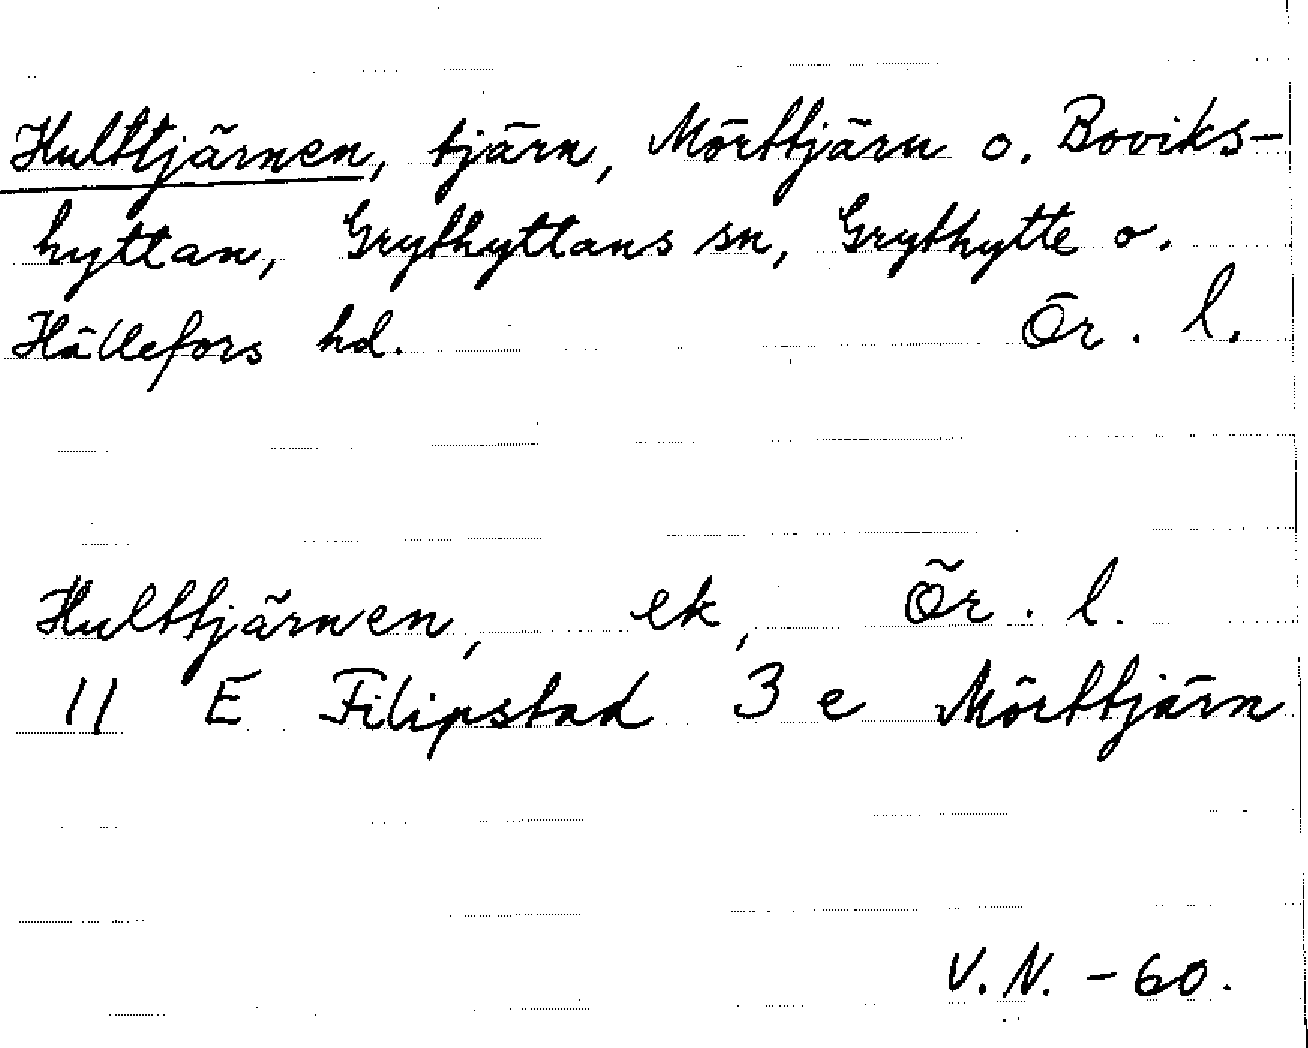 Hulttjärnen, tjärn, Mörttjärn o. Boviks-
hyttan, Grythyttans sn, Grythytte o.
Hällefors hd. Ör. l.
Hulttjärnen, ek, Ör. l.
11 E Filipstad 3 e Mörttjärn
V. N. - 60.